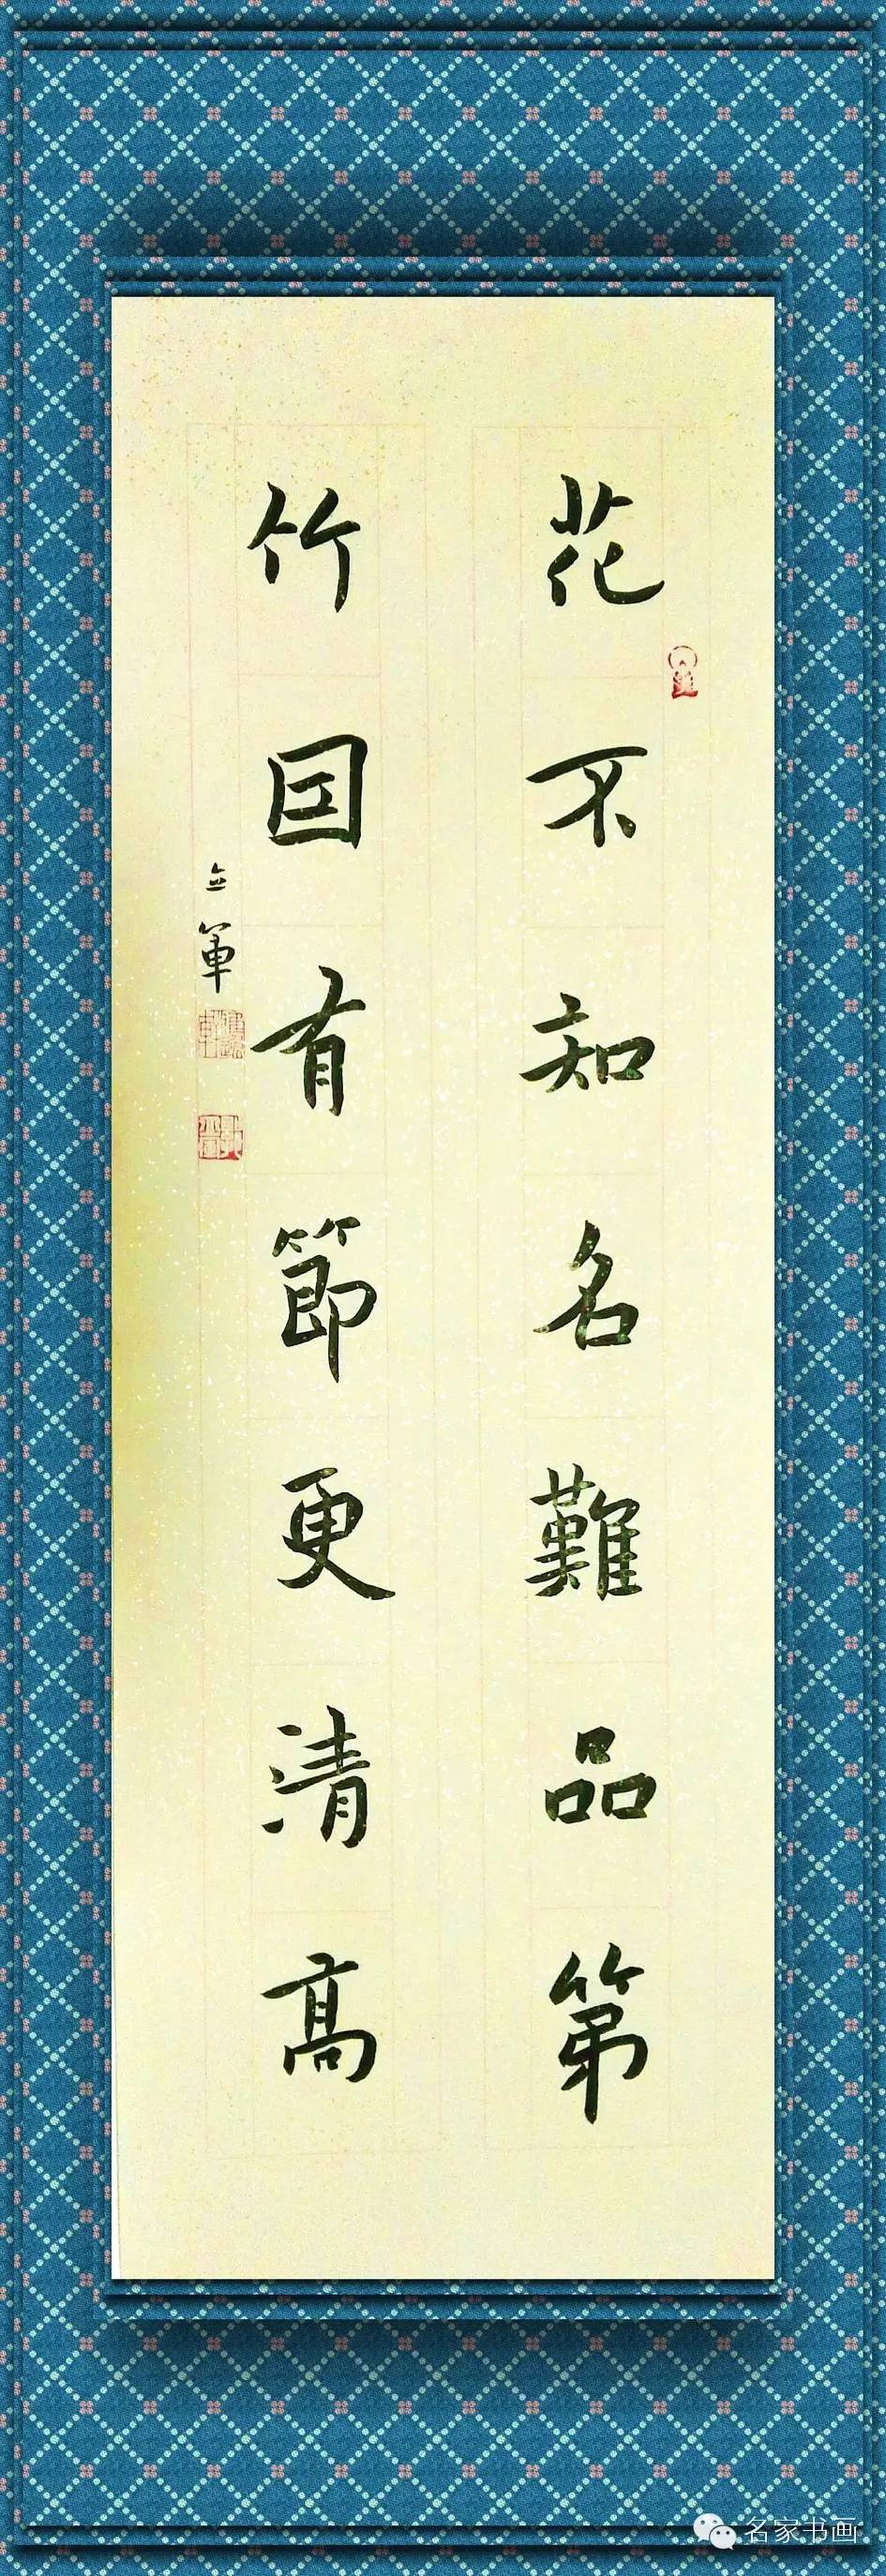 花不知名難品第
竹因有節更清高
立軍
名家书画